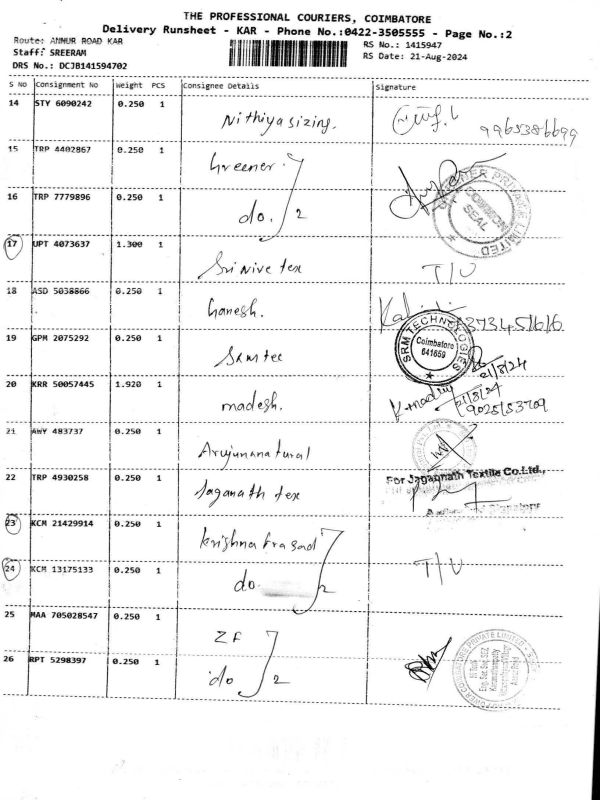 THE PROFESSIONAL COURIERS, COIMBATORE
Delivery Runsheet - KAR - Phone No.:0422-3505555 - Page No.:2
Route: ANNUR ROAD KAR
RS No.: 1415947
Staff: SREERAM
RS Date: 21-Aug-2024
DRS No.: DCJB141594702
S No Consignment No Weight PCS Consignee Details Signature
14 STY 6090242 0.250 1 Nithiya sizing.
9965386699
15 TRP 4402867 0.250 1 Greener.
16 TRP 7779896 0.250 1 do. 2
PRIVATE LIMITED
COMMON
SEAL
17 UPT 4073637 1.300 1 Sri Nive tex T/U
18 ASD 5038866 0.250 1 Ganesh.
19 GPM 2075292 0.250 1 SRM tec
SRM TECHNOLOGIES
Coimbatore
641659
21/8/24
20 KRR 50057445 1.920 1 madesh.
21/8/24
21 AWY 483737 0.250 1 Arujunanatural
22 TRP 4930258 0.250 1 Jaganath tex
For Jagannath Textile Co.Ltd.,
23 KCM 21429914 0.250 1 Krishna Prasad
24 KCM 13175133 0.250 1 do. 2 T/U
25 MAA 705028547 0.250 1 ZF
26 RPT 5298397 0.250 1 do 2